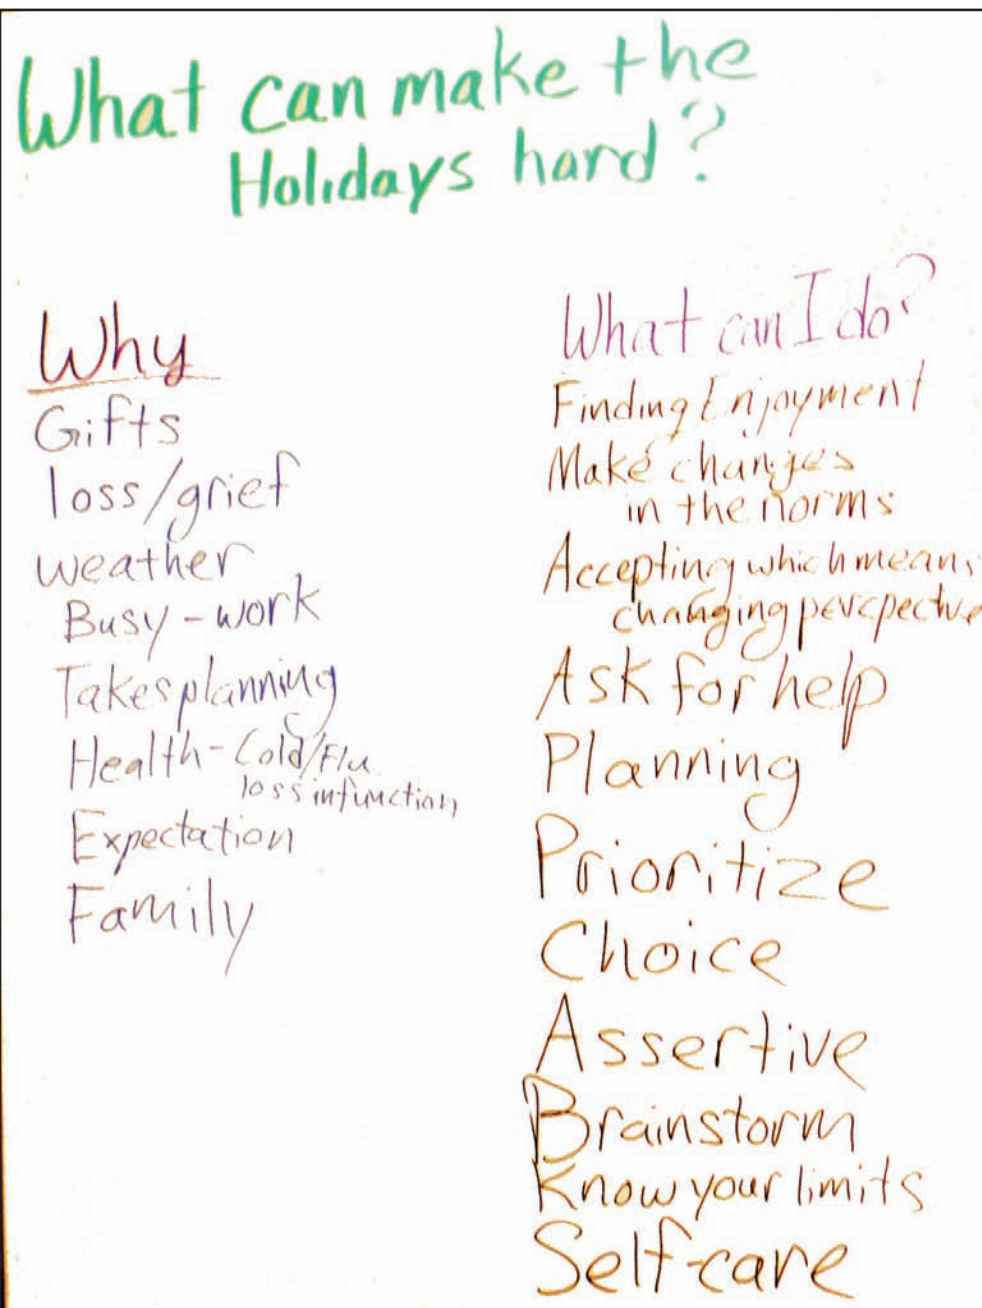 What can make the
Holidays hard?
Why
Gifts
loss/grief
weather
Busy - work
Takes planning
Health - Cold/Flu
loss in function
Expectation
Family
What can I do?
Finding Enjoyment
Make changes
in the norms
Accepting which means
changing perspective
Ask for help
Planning
Prioritize
Choice
Assertive
Brainstorm
Know your limits
Self-care